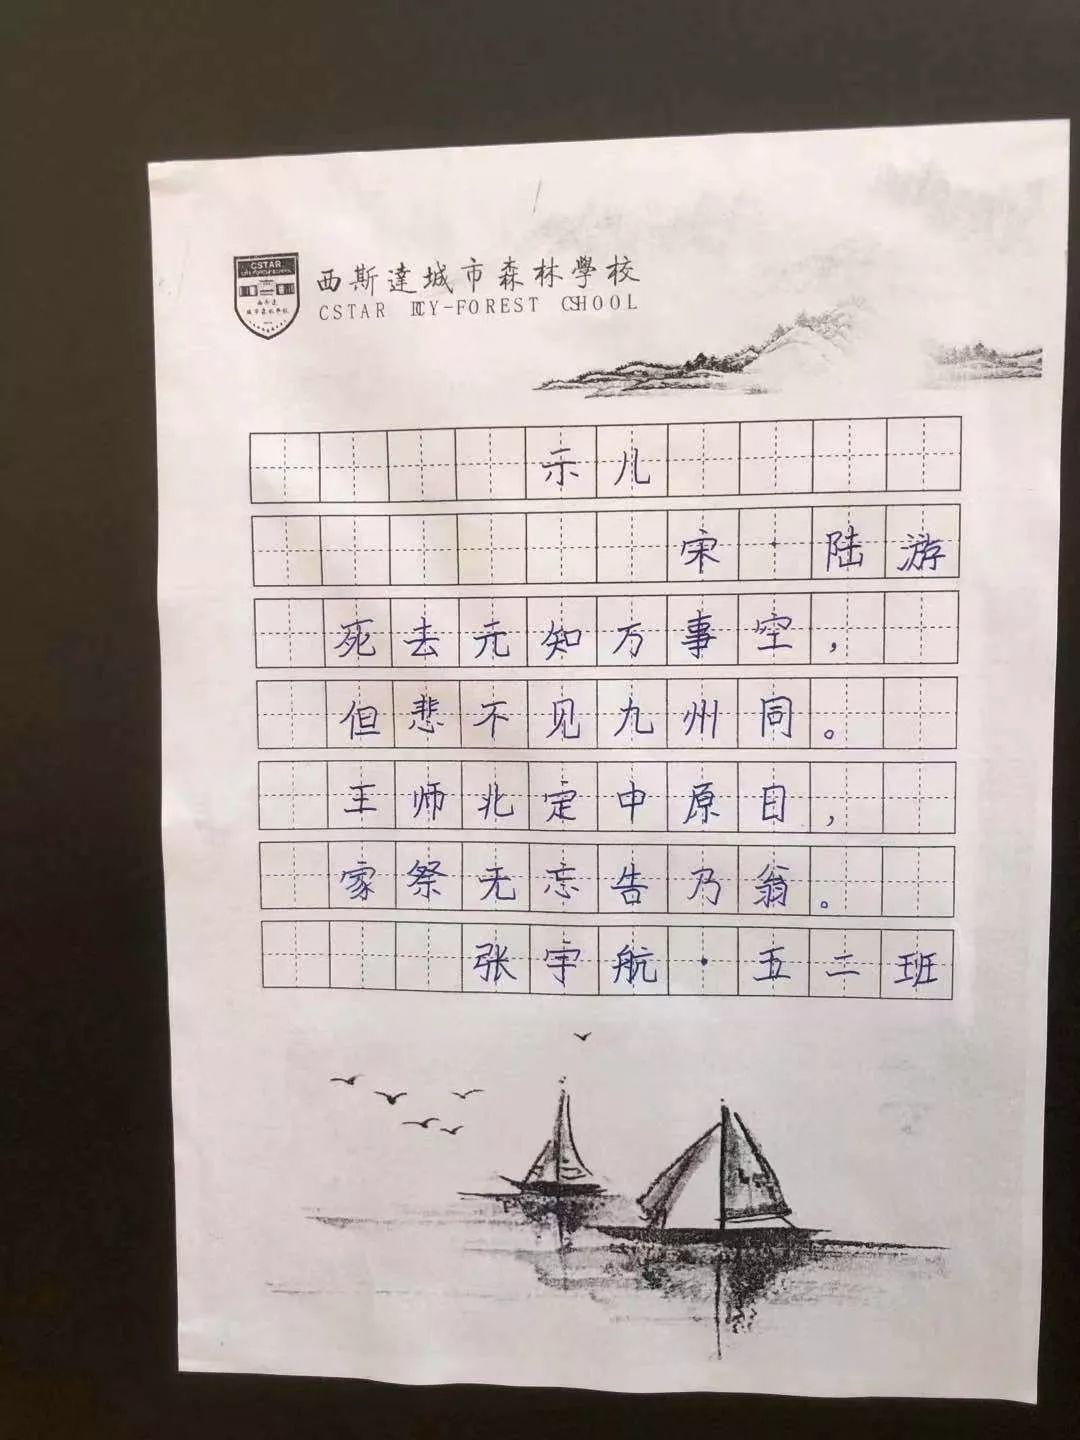 CSTAR
西斯達城市森林學校
CSTAR CITY-FOREST SCHOOL
示儿
宋·陆游
死去元知万事空，
但悲不见九州同。
王师北定中原日，
家祭无忘告乃翁。
张宇航·五二班